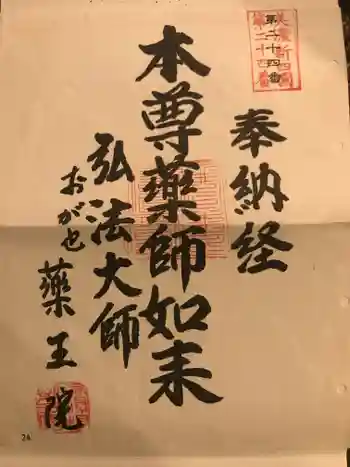 美濃新四国
第二十四番
奉納経
本尊薬師如来
弘法大師
おがせ薬王院